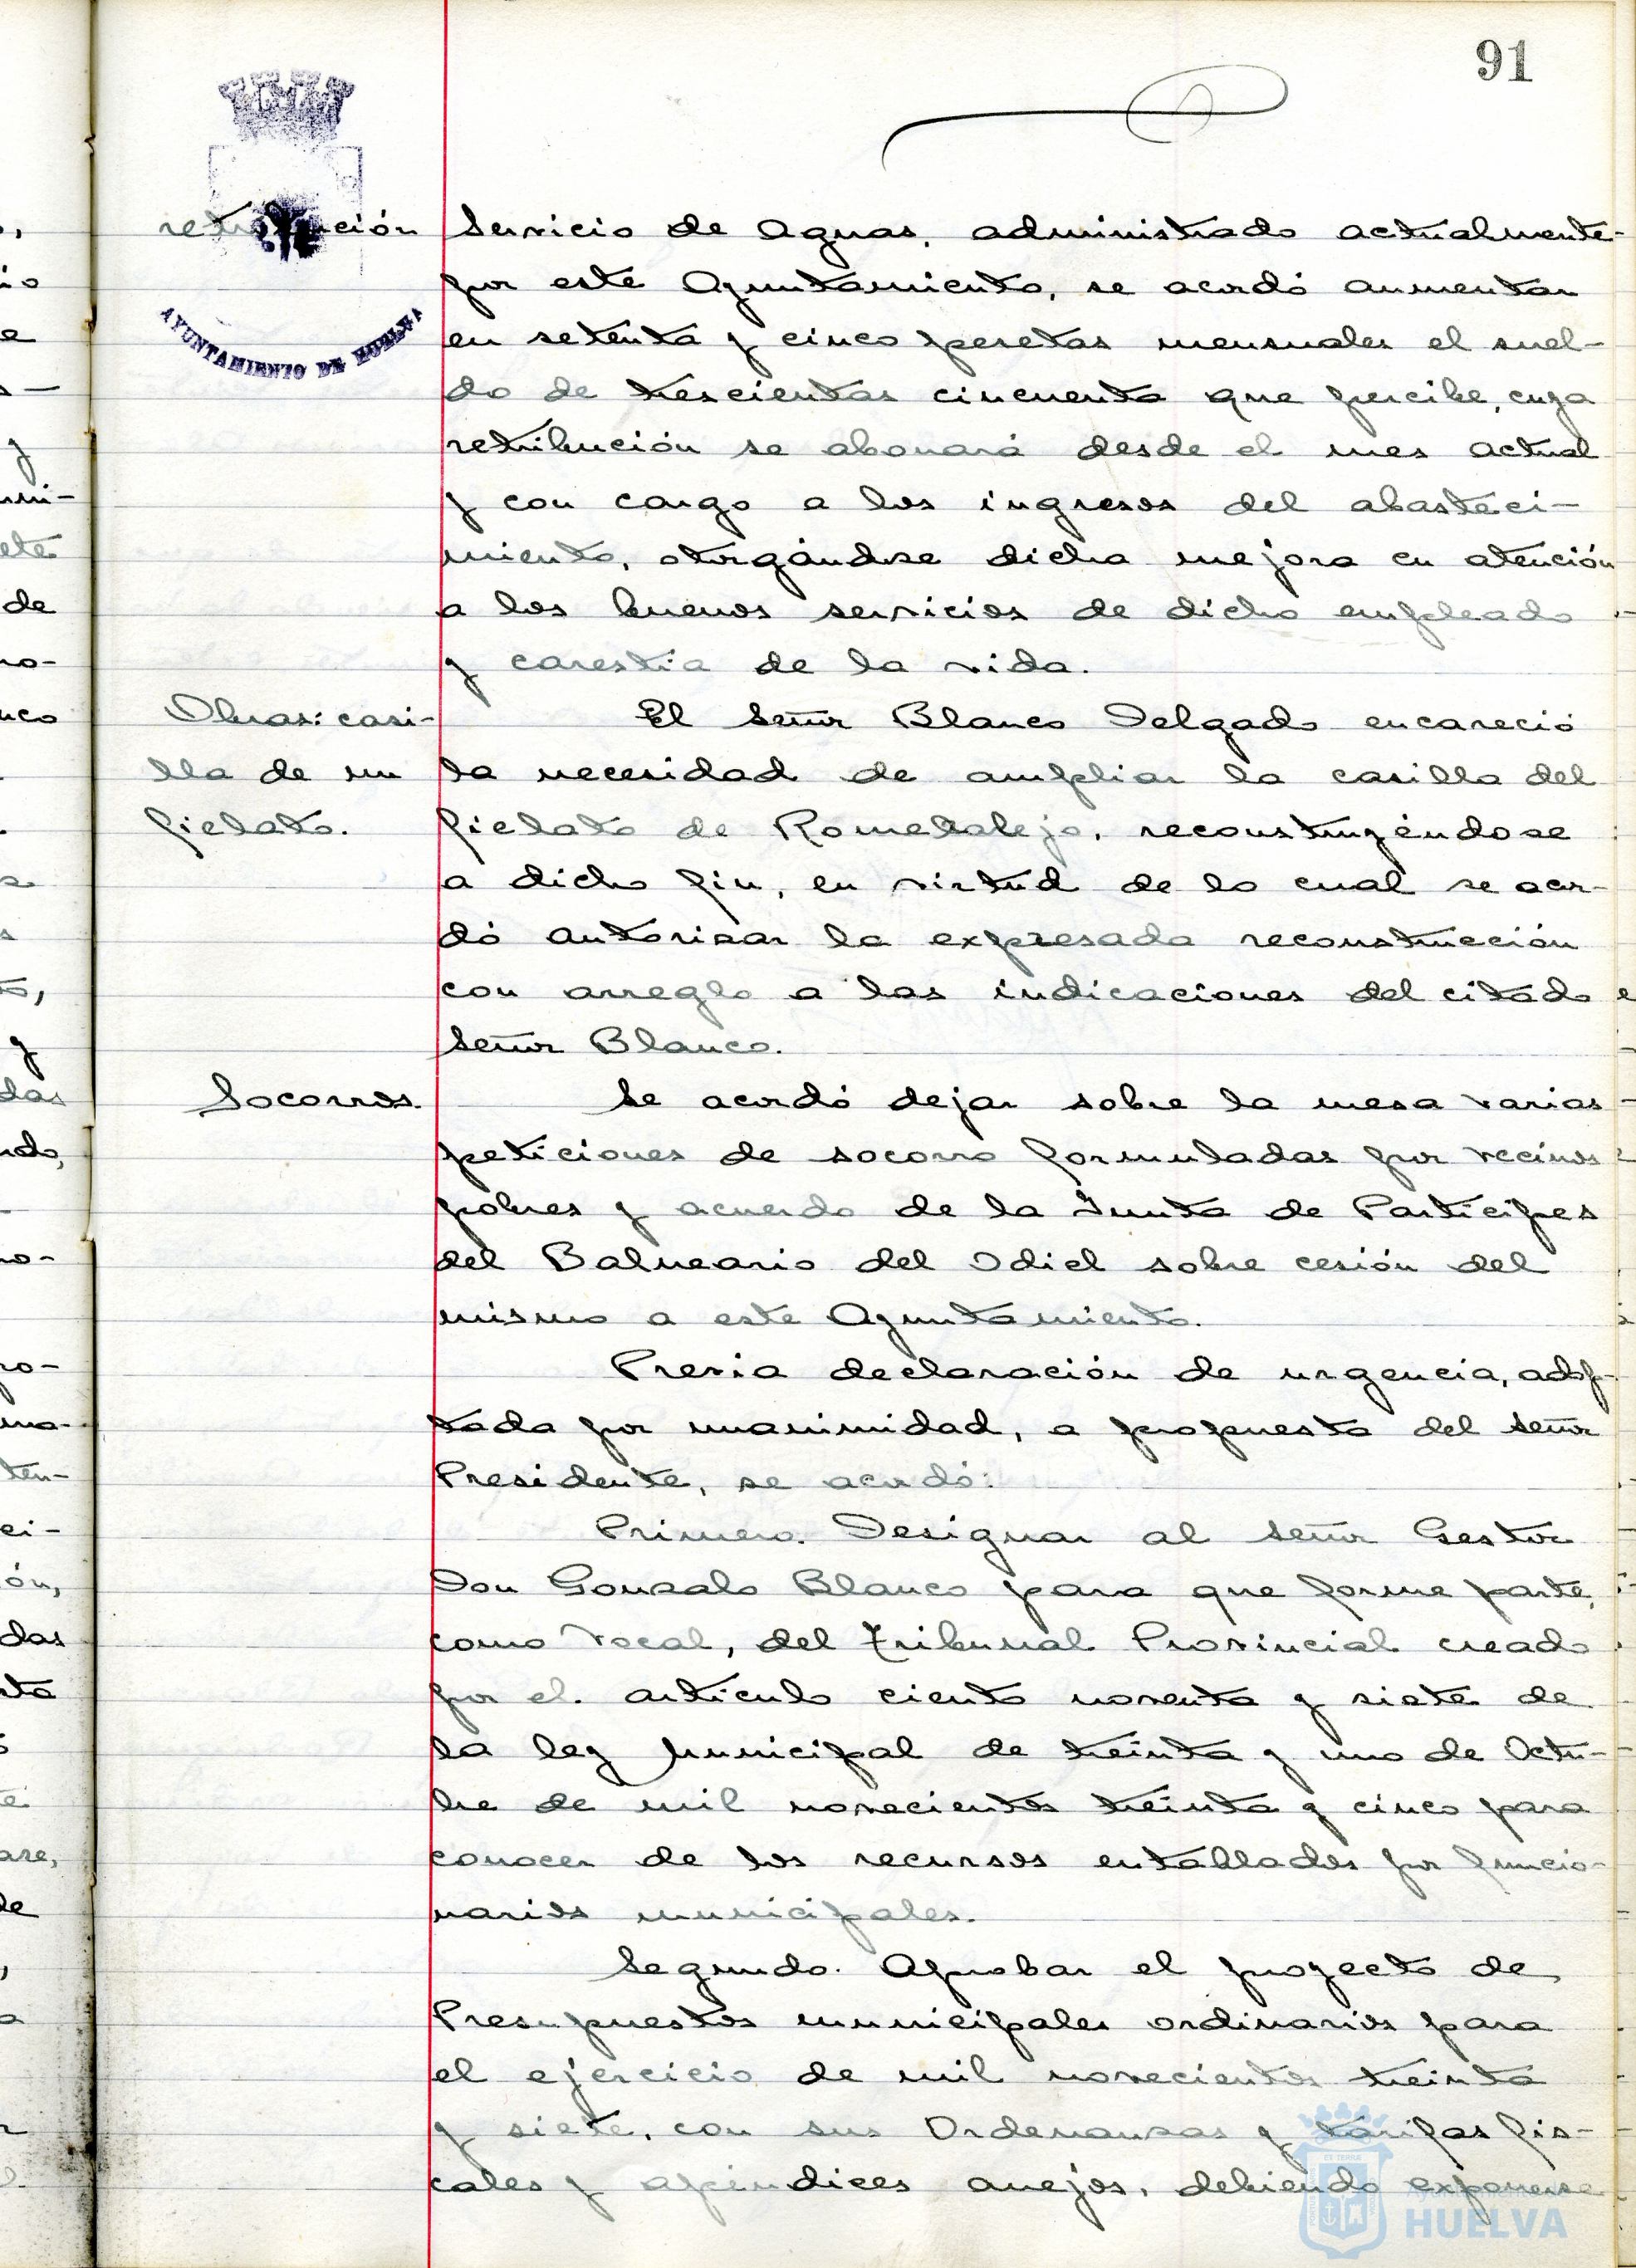 91
retribución
Servicio de Aguas, administrado actualmente
por este Ayuntamiento, se acordó aumentar
AYUNTAMIENTO DE HUELVA
en setenta y cinco pesetas mensuales el suel-
do de trescientas cincuenta que percibe, cuya
retribución se abonará desde el mes actual
y con cargo a los ingresos del abasteci-
miento, otorgándose dicha mejora en atención
a los buenos servicios de dicho empleado
y carestía de la vida.
Obras: casi-
lla de un
fielato.
El Señor Blanco Delgado encareció
la necesidad de ampliar la casilla del
fielato de Rometalejo, reconstruyéndose
a dicho fin, en virtud de lo cual se acor-
dó autorizar la expresada reconstrucción
con arreglo a las indicaciones del citado
Señor Blanco.
Socorros.
Se acordó dejar sobre la mesa varias
peticiones de socorro formuladas por vecinos
pobres y acuerdo de la Junta de Partícipes
del Balneario del Odiel sobre cesión del
mismo a este Ayuntamiento.
Previa declaración de urgencia, adop-
tada por unanimidad, a propuesta del Señor
Presidente, se acordó:
Primero. Designar al Señor Gestor
Don Gonzalo Blanco para que forme parte,
como Vocal, del Tribunal Provincial creado
por el artículo ciento noventa y siete de
la ley Municipal de treinta y uno de Octu-
bre de mil novecientos treinta y cinco para
conocer de los recursos entablados por funcio-
narios municipales.
Segundo. Aprobar el proyecto de
Presupuestos municipales ordinarios para
el ejercicio de mil novecientos treinta
y siete, con sus Ordenanzas y tarifas fis-
cales y apéndices anejos, debiendo exponerse
HUELVA